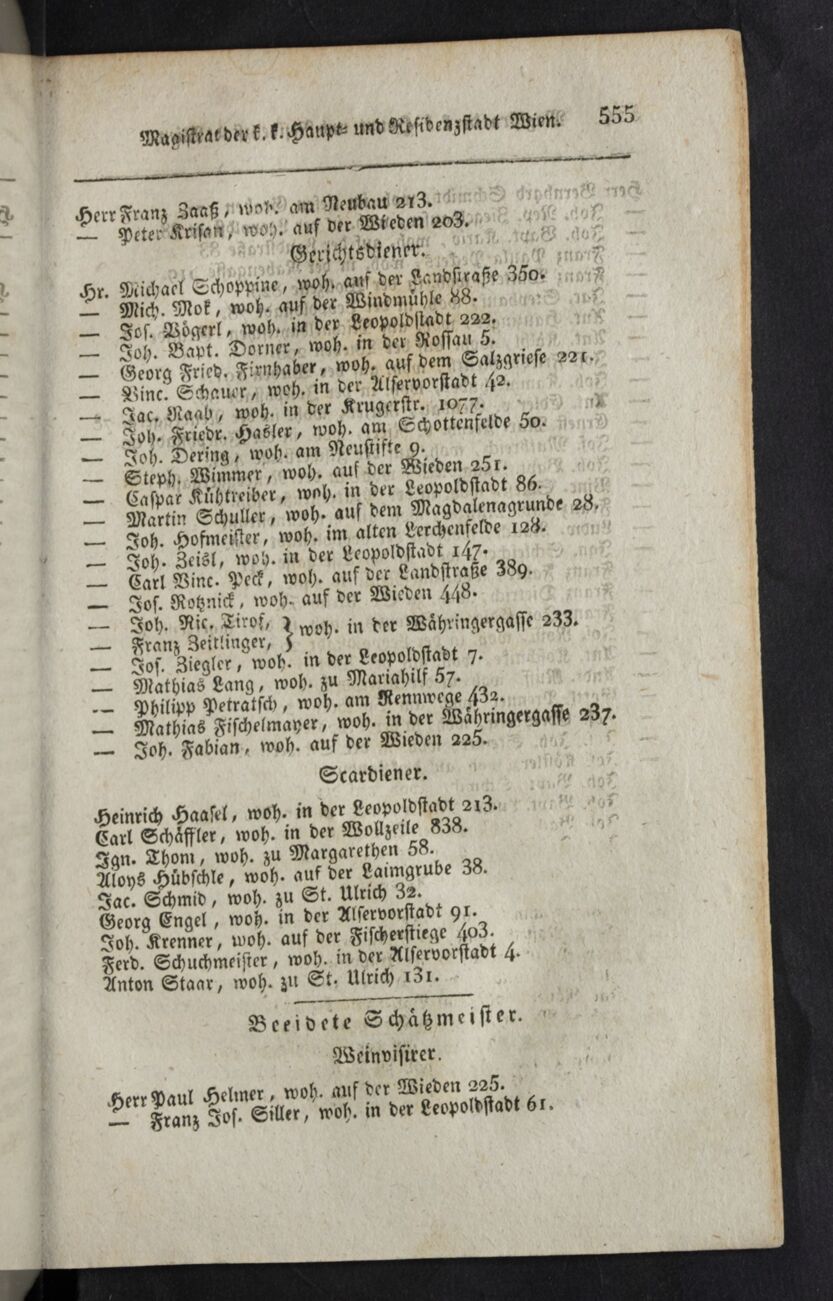 Magistrat der k. k. Haupt- und Residenzstadt Wien. 555
Herr Franz Zaaß, woh. am Neubau 213.
— Peter Krisan, woh. auf der Wieden 203.
Gerichtsdiener.
Hr. Michael Schoppine, woh. auf der Landstraße 350.
— Mich. Mok, woh. auf der Windmühle 88.
— Jos. Vögerl, woh. in der Leopoldstadt 222.
— Joh. Bapt. Dorner, woh. in der Rossau 5.
— Georg Fried. Firnhaber, woh. auf dem Salzgriese 221.
— Vinc. Schauer, woh. in der Alservorstadt 42.
— Jac. Raab, woh. in der Krugerstr. 1077.
— Joh. Friedr. Hasler, woh. am Schottenfelde 50.
— Joh. Dering, woh. am Neustifte 9.
— Steph. Wimmer, woh. auf der Wieden 251.
— Caspar Kühtreiber, woh. in der Leopoldstadt 86.
— Martin Schuller, woh. auf dem Magdalenagrunde 28.
— Joh. Hofmeister, woh. im alten Lerchenfelde 128.
— Joh. Zeisl, woh. in der Leopoldstadt 147.
— Carl Vinc. Peck, woh. auf der Landstraße 389.
— Jos. Rotznick, woh. auf der Wieden 448.
— Joh. Nic. Tirof, } woh. in der Währingergasse 233.
— Franz Zeitlinger, }
— Jos. Ziegler, woh. in der Leopoldstadt 7.
— Mathias Lang, woh. zu Mariahilf 57.
— Philipp Petratsch, woh. am Rennwege 432.
— Mathias Fischelmayer, woh. in der Währingergasse 237.
— Joh. Fabian, woh. auf der Wieden 225.
Scardiener.
Heinrich Haasel, woh. in der Leopoldstadt 213.
Carl Schäffler, woh. in der Wollzeile 838.
Ign. Thom, woh. zu Margarethen 58.
Aloys Hübschle, woh. auf der Laimgrube 38.
Jac. Schmid, woh. zu St. Ulrich 32.
Georg Engel, woh. in der Alservorstadt 91.
Joh. Krenner, woh. auf der Fischerstiege 403.
Ferd. Schuchmeister, woh. in der Alservorstadt 4.
Anton Staar, woh. zu St. Ulrich 131.
Beeidete Schätzmeister.
Weinvisirer.
Herr Paul Helmer, woh. auf der Wieden 225.
— Franz Jos. Siller, woh. in der Leopoldstadt 61.